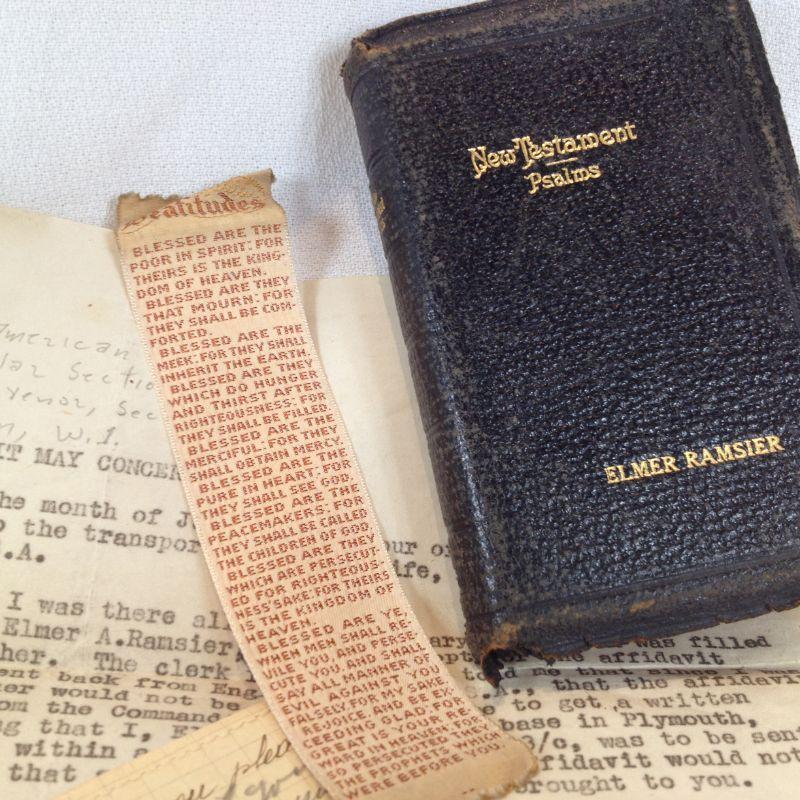 New Testament
Psalms
ELMER RAMSIER
Beatitudes
BLESSED ARE THE
POOR IN SPIRIT: FOR
THEIRS IS THE KING-
DOM OF HEAVEN.
BLESSED ARE THEY
THAT MOURN: FOR
THEY SHALL BE COM-
FORTED.
BLESSED ARE THE
MEEK: FOR THEY SHALL
INHERIT THE EARTH.
BLESSED ARE THEY
WHICH DO HUNGER
AND THIRST AFTER
RIGHTEOUSNESS: FOR
THEY SHALL BE FILLED.
BLESSED ARE THE
MERCIFUL: FOR THEY
SHALL OBTAIN MERCY.
BLESSED ARE THE
PURE IN HEART: FOR
THEY SHALL SEE GOD.
BLESSED ARE THE
PEACEMAKERS: FOR
THEY SHALL BE CALLED
THE CHILDREN OF GOD.
BLESSED ARE THEY
WHICH ARE PERSECUT-
ED FOR RIGHTEOUS-
NESS' SAKE: FOR THEIRS
IS THE KINGDOM OF
HEAVEN.
BLESSED ARE YE,
WHEN MEN SHALL RE-
VILE YOU, AND PERSE-
CUTE YOU, AND SHALL
SAY ALL MANNER OF
EVIL AGAINST YOU
FALSELY, FOR MY SAKE.
REJOICE AND BE EX-
CEEDING GLAD: FOR
GREAT IS YOUR RE-
WARD IN HEAVEN: FOR
SO PERSECUTED THEY
THE PROPHETS WHICH
WERE BEFORE YOU.
American
Section
W.I.
IT MAY CONCER
the month of
the transpor our
.A. ife,
I was there
Elmer A.Ramsier was filled
her. The clerk the affidavit
ent back from Eng that the affidavit
er would not be to get a written
om the Comman base in Plymouth,
g that I, was to be sent
within a affidavit would not
that brought to you.